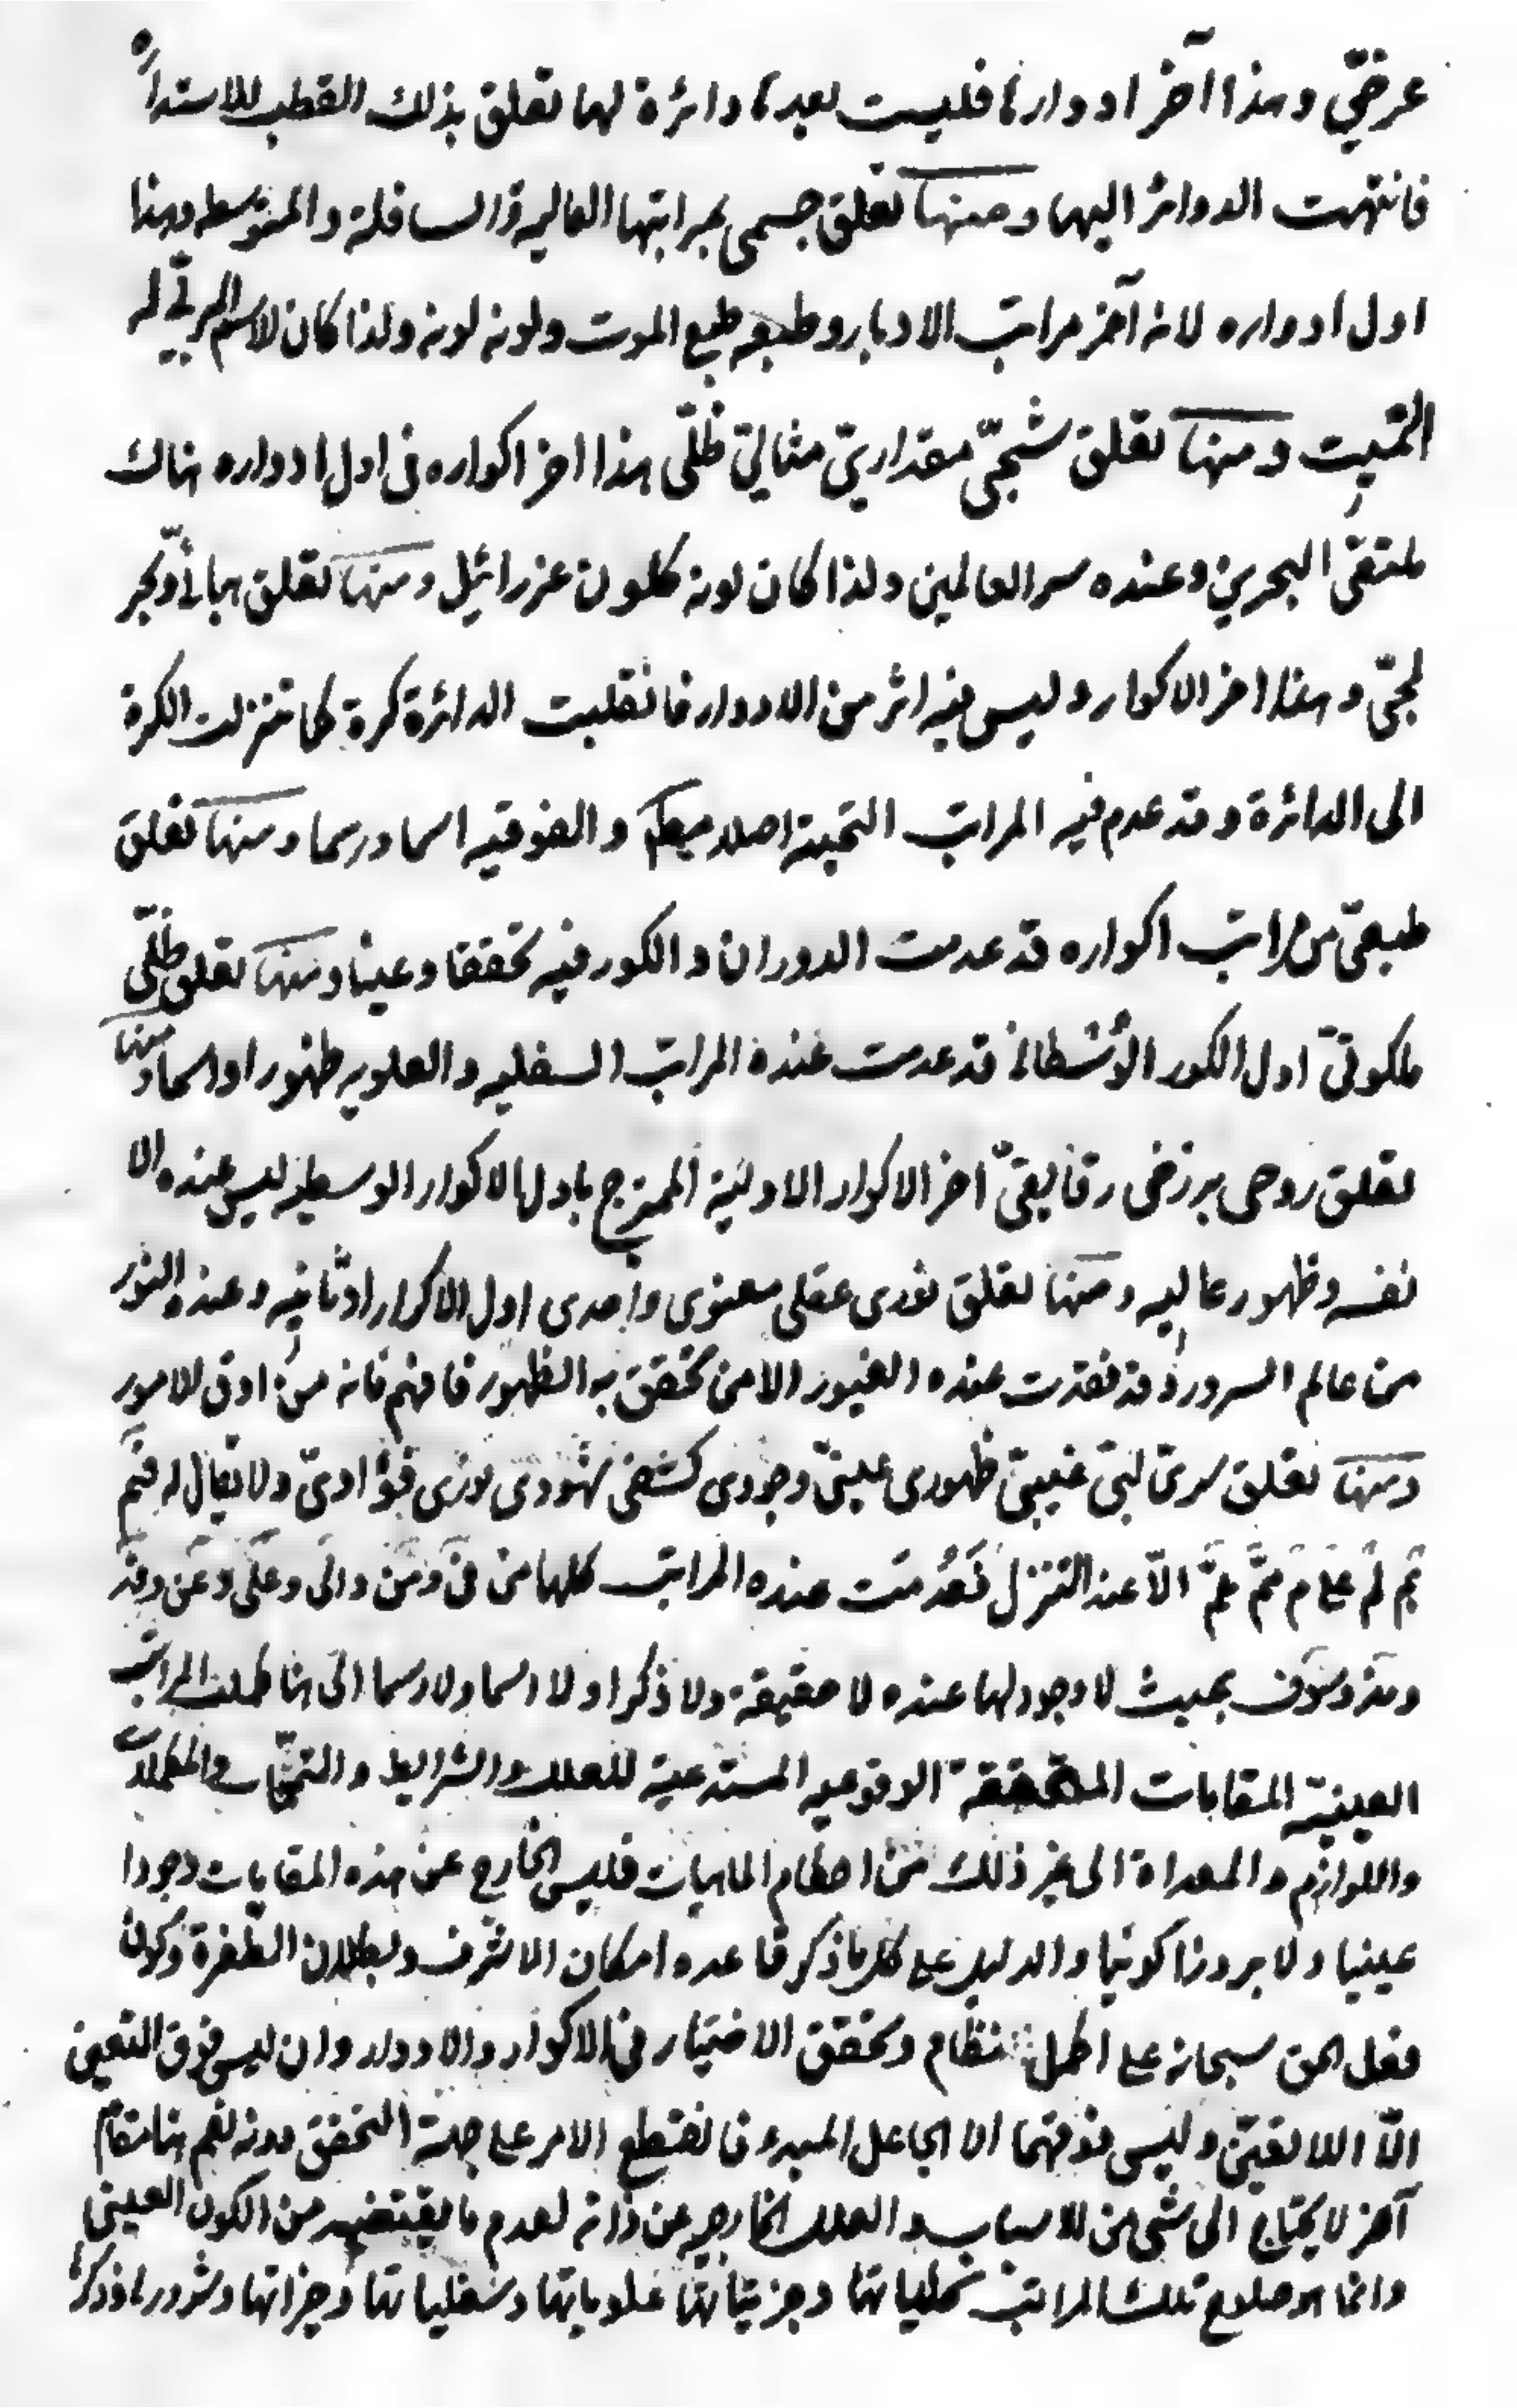 عرضيّ وهذا آخر ادوارها فليست بعدها دائرة لها تعلق بذلك القطب للاستدارة
فانتهت الدوائر اليها ومنها تعلق جسمي بمراتبها العالية والسافلة والمتوسطه وهذا
اول ادواره لانه آخر مراتب الادبار وطبعه طبع الموت ولونه لونه ولذا كان الاسم المربّي له
المميت ومنها تعلق شبحيّ مقداريّ مثاليّ ظلّي هذا اخر اكواره في اول ادواره هناك
ملتقى البحرين وعنده سر العالمين ولذا كان لونه كلون عزرائيل ومنها تعلق هبائي وبحر
لجّي وهذا اخر الاكوار وليس فيه اثر من الادوار فانقلبت الدائرة كرة كما تنزلت الكرة
الى الدائرة وقد عدم فيه المراتب التحتية اصلا والفوقيه اسما ورسما ومنها تعلق
طبيعيّ من مراتب اكواره قد عدمت الدوران والكور فيه تحققا وعينا ومنها تعلق ظلّي
ملكوتيّ اول الكور قد عدمت عنده المراتب السفليه والعلويه ظهورا واسما ومنها
تعلق روحي برزخي رقايقيّ اخر الاكوار الاولية الممتزج باول الاكوار الوسطيه ليس عنده الا
نفسه وظهور عاليه ومنها تعلق نوري عقلي معنوي واحدي اول الاكوار وثانيه وعنده النور
من عالم السرور وقد فقدت عنده الغيور الا من تحقق به الظهور فافهم فانه من ادق الامور
ومنها تعلق سريّ لبيّ غيبيّ ظهوري عينيّ وجودي كشفي شهودي نوري فؤاديّ ولا يقال له فيم
بم لم على م مم عمّ الّا عند التنزل فَعُدمت عنده المراتب كلها من في ومن والى وعلى وعن وقد
ومذ وسوف بحيث لا وجود لها عنده لا حقيقة ولا ذكرا ولا اسما ولا رسما الى هنا كملت المراتب
العينيّة المقامات المتحققة الوقوعيه المستدعية للعلل والشرايط والمتمّمات والمكملات
واللوازم والمعداة الى غير ذلك من احكام الماهيات فليس الخارج عن هذه المقامات وجودا
عينيا ولا بروزا كونيا والدليل على كل ما ذكر قاعده امكان الاشرف وبطلان الطّفرة وكون
فعل الحق سبحانه على اكمل نظام وتحقق الاختيار في الاكوار والادوار وان ليس فوق التعين
الّا اللا تعيّن وليس فوقهما الا الجاعل المبدء فانقطع الامر على جهة التحقق دونه نعم هنا مقام
آخر لا يحتاج الى شيء من الاسباب والعلل الخارجيه عن ذاته لعدم ما يقتضيه من الكون العيني
وانما هو صلوح تلك المراتب بكلياتها وجزئياتها علوياتها وسفلياتها وخيراتها وشرورها وذكرها